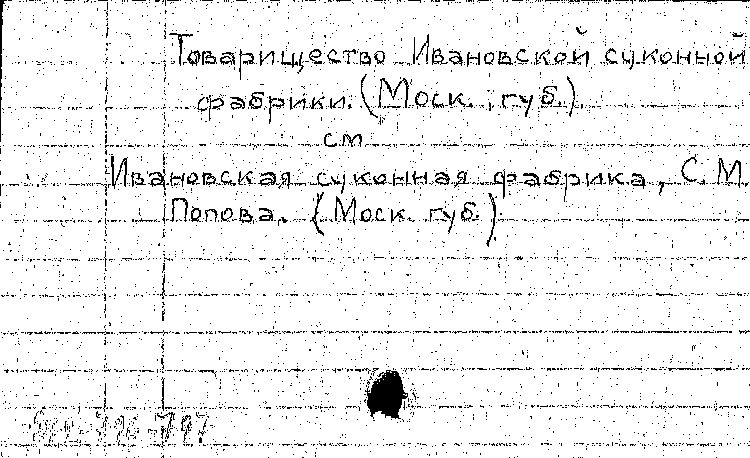 Товарищество Ивановской суконной
фабрики. (Моск. губ.)
см
Ивановская суконная фабрика, С. М.
Попова. (Моск. губ.)